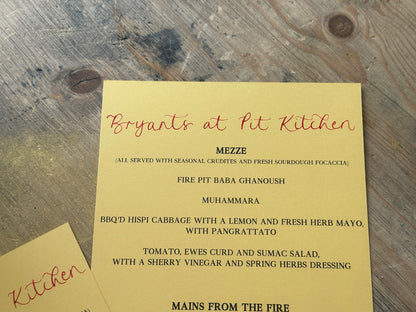 Bryants at Pit Kitchen
MEZZE
(ALL SERVED WITH SEASONAL CRUDITES AND FRESH SOURDOUGH FOCACCIA)
FIRE PIT BABA GHANOUSH
MUHAMMARA
BBQ'D HISPI CABBAGE WITH A LEMON AND FRESH HERB MAYO,
WITH PANGRATTATO
TOMATO, EWES CURD AND SUMAC SALAD,
WITH A SHERRY VINEGAR AND SPRING HERBS DRESSING
MAINS FROM THE FIRE
Kitchen